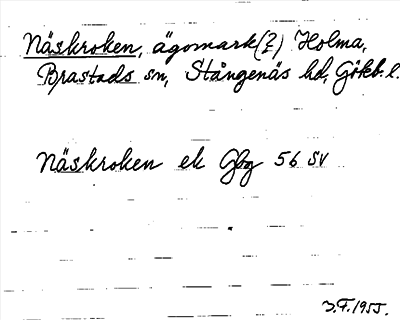 Näskroken, ägomark(?) Holma,
Brastads sn, Stångenäs hd, Göteb. l.
Näskroken ek Gbg 56 SV
J.F. 1955.